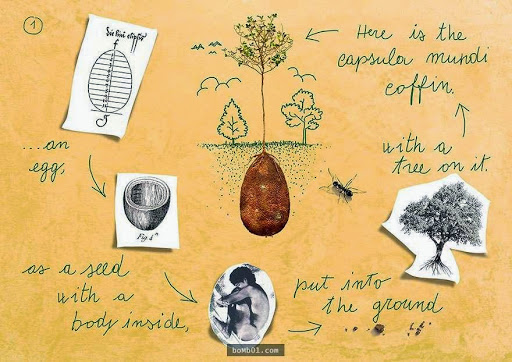 1
Die Eini eliptis
f
g
Here is the
capsula mundi
coffin.
...an
egg,
Fig. 4ª
as a seed
with a
body inside,
put into
the ground
with a
tree on it.
boMb01.com